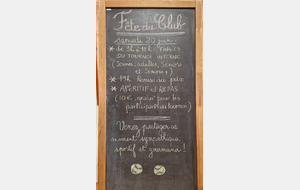 Fête du Club
samedi 20 juin
* de 9h à 19h FINALES
DU TOURNOI INTERNE
(Jeunes, adultes, Séniors
et Séniors+)
* 19h Remise des prix
* APERITIF et REPAS
(10€, gratuit pour les
participants au tournoi)
Venez partager ce
moment sympathique,
sportif et gourmand !